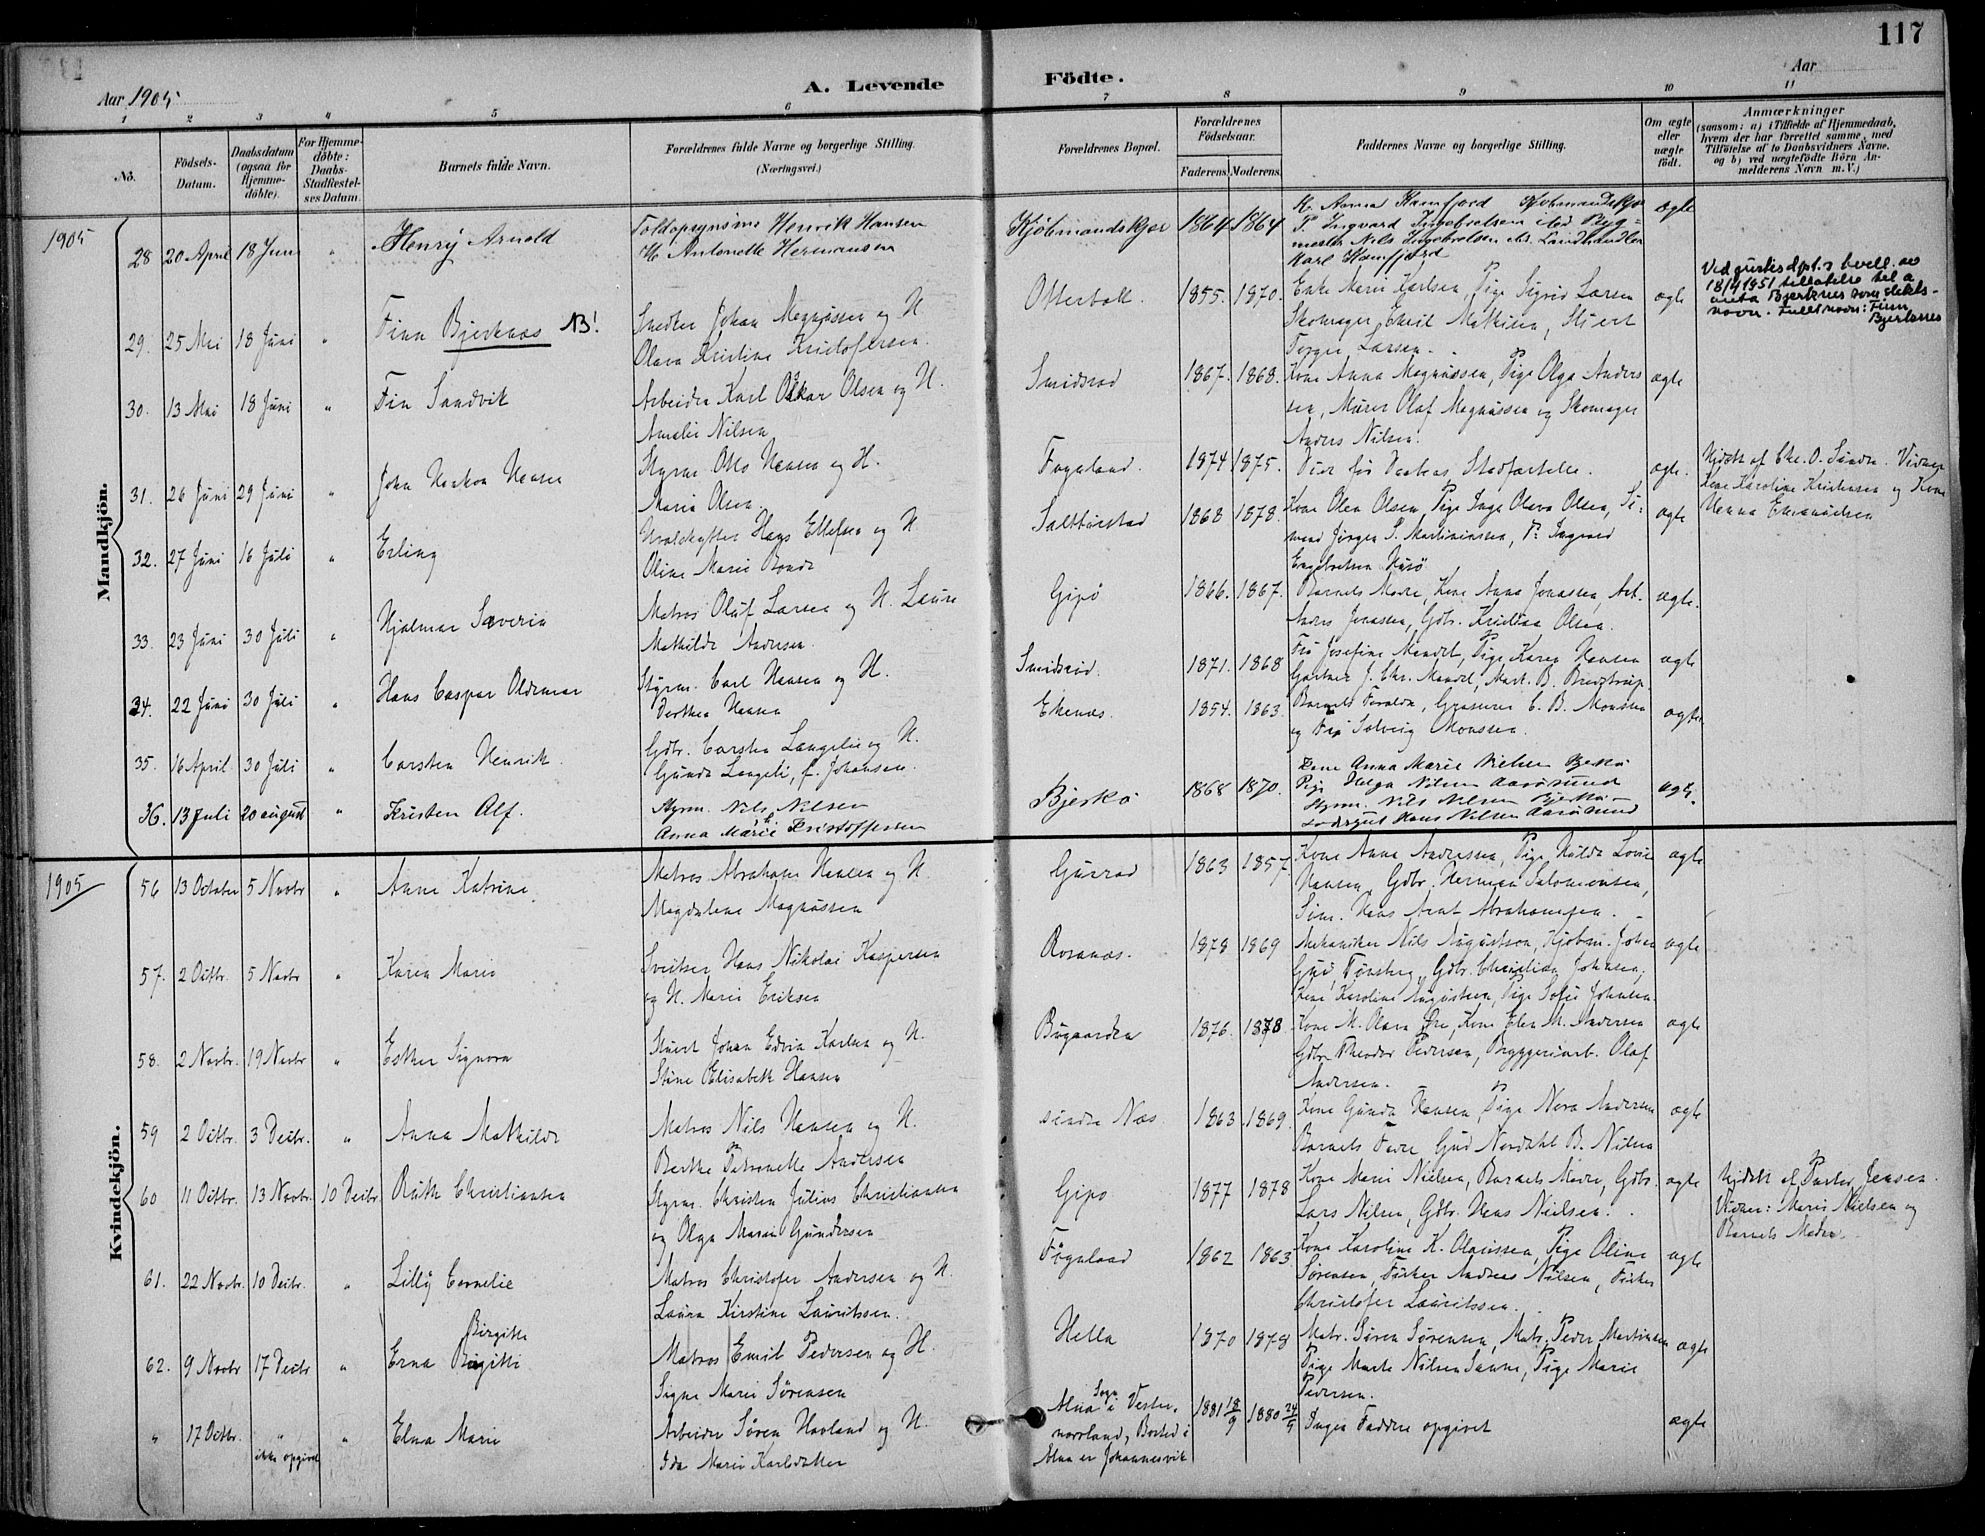 117
A. Levende Födte.
Aar 1905
Aar
1 2 3 4 5 6 7 8 9 10 11
No.
Födsels-Datum.
Daabsdatum (ogsaa for Hjemme-döbte).
For Hjemme-döbte: Daabs-Stadfæstel-ses Datum.
Barnets fulde Navn.
Forældrenes fulde Navne og borgerlige Stilling. (Næringsvei.)
Forældrenes Bopæl.
Forældrenes Födselsaar.
Faderens. Moderens.
Faddernes Navne og borgerlige Stilling.
Om ægte eller uægte födt.
Anmærkninger
(saasom: a) i Tilfælde af Hjemmedaab, hvem der har forrettet samme, med Tilföielse af to Daabsvidners Navne. og b) ved uægtefödte Börn An-melderens Navn m. V.)
Mandkjön.
1905
28 20 April 18 Juni " Henry Arnold
Toldopsynsmd Henrik Hansen
H. Antonette Hermansen
Kjöbmandskjær 1864 1864
K. Anna Kamfjord
P. Ingvard Ingebretsen
Nils Ingebretsen Landhandler
Karl Kamfjord
ægte
29. 25 Mai 18 Juni " Finn Bjerknæs NB!
Snedker Johan Magnussen og H.
Olava Kristine Kristofersen.
Otterbæk. 1855. 1870.
Enke Marie Karlsen, Pige Sigrid Larsen
Skomager Emil Mathisen, Stuert
Torger Larsen.
ægte
Ved justisdpt.s bevill. av
18/4 1951 tillatelse til å
anta Bjerknes som slekts-
navn. Fullt navn: Finn
Bjerknes
30. 13 Mai 18 Juni " Fin Sandvik
Arbeider Karl Oskar Olsen og H.
Amalie Nilsen
Smidsrød 1867. 1868.
Kone Anna Magnussen, Pige Olga Anders
sen, Murer Olaf Magnussen og Skomager
Anders Nilsen.
ægte
31. 26 Juni 29 Juni " John Haakon Hansen
Styrm. Otto Hansen og H.
Maria Olsen
Fagnland. 1874 1875.
Død før Daabens Stadfæstelse.
ægte.
Hjdøbt af Chr. O. Sundene. Vidner
Kone Karoline Kristensen og Kone
Hanna Emanuelsen
32. 27 Juni 16 Juli " Erling
Hvalskytter Hans Ellefsen og H.
Oline Marie Bonde
Saltbustad 1868 1878.
Kone Olea Olsen, Pige Inga Olava Olsen, Sø-
mand Jørgen S. Martiniussen, P. Ingvard
Engebretsen Husø
ægte
33. 23 Juni 30 Juli " Hjalmar Severin
Matros Oluf Larsen og H. Laura
Mathilde Andersen.
Gipø 1866. 1867.
Barnets Moder, Kone Anna Jonassen, Arb.
Anders Jonassen, Gdbr. Kristian Olsen.
ægte.
34. 22 Juni 30 Juli " Hans Caspar Oldemar
Styrm. Carl Hansen og H.
Dorthea Hansen
Smidsrød. 1871. 1868
Fru Josefine Mandt, Pige Karen Hansen
Gartner J. Chr. Mandt, Mask. B. Bredstrup.
ægte
35. 16 April 30 Juli " Carsten Henrik.
Gdbr. Carsten Langeli og H.
Gunda Langeli, f. Johansen.
Ekenæs. 1854. 1863.
Barnets Forældre, Grosserer C. B. Monssen
og Frk Solveig Monssen.
ægte
36. 13 Juli 20 august " Kristen Alf.
Styrm. Nils Nilsen
Anna Marie Kristoffersen
Bjerkø 1868 1870.
Kone Anna Marie Nielsen Bjerkø
Pige Helga Nilsen Aarøsund
Styrm. Nils Nilsen Bjerkø
Lodsgut Hans Nilsen Aarøsund
ægte.
Kvindekjön.
1905
56 13 October 5 Novbr " Anne Katrine
Matros Abraham Hansen og H.
Magdalene Magnussen
Gurrød 1863 1857.
Kone Anna Andressen, Pige Hulda Lovise
Hansen, Gdbr. Herman Salomonsen,
Søm. Hans Arnt Abrahamsen.
ægte
57. 2 Octbr. 5 Novbr " Karen Marie
Sveitser Hans Nikolai Kaspersen
og H. Marie Eriksen
Rosanes. 1878 1869
Mekaniker Nils Augustson, Kjøbm. Johan
Gjud, Tønsberg, Gdbr. Christian Johnsen,
Kone Karoline Augustsen, Pige Sofie Johnsen.
ægte
58. 2 Novbr. 19 Novbr " Esther Signora
Stuert Johan Edvin Karlsen og H.
Stine Elisabeth Hansen
Bugaarden 1876. 1878.
Kone M. Olava Øre, Kone Elen M. Andersen
Gdbr Theodor Pedersen, Bryggeriarb. Olaf
Andersen.
ægte
59 2 Octbr. 3 Decbr. " Anna Mathilde
Matros Nils Hansen og H.
Berthe Petronelle Andersen
søndre Næs. 1863 1869.
Kone Gunda Hansen, Pige Nora Andersen
Barnets Fader, Gjud Nordahl B. Nilsen
ægte
60 11 Octbr. 13 Novbr. 10 Decbr. Ruth Christiansen
Styrm. Christen Julius Christiansen
og Olga Marie Gundersen
Gipø 1877 1878
Kone Marie Nielsen, Barnets Moder, Gdbr.
Lars Nilsen, Gdbr. Hans Nielsen.
ægte
Hjdøbt af Pastor Jensen.
Vidner: Marie Nielsen og
Barnets Moder.
61. 22 Novbr. 10 Decbr. " Lilly Cornelie
Matros Christofer Andersen og H.
Laura Kirstine Lauritssen.
Fognland 1862 1863
Kone Karoline K. Olaussen, Pige Oline
Sørensen, Fisker Andreas Nilsen, Fisker
Christofer Lauritssen.
ægte
62. 9 Novbr 17 Decbr " Erna Birgitte Birgitte
Matros Emil Pedersen og H.
Signe Marie Sørensen
Hella 1870 1878
Matr. Søren Sørensen, Matr. Peder Martinsen
Pige Marte Nilsen Sanne, Pige Marie
Pedersen.
ægte
" 17 Octbr. " ikke opgivet " Elna Marie
Arbeider Søren Havland og H.
Ida Marie Karlsdatter
Alnö Sogn i Vester-
norrland, Bosted i
Alnö er Johannesvik
1881 18/9 1880 24/9
Ingen Faddere opgivet
ægte